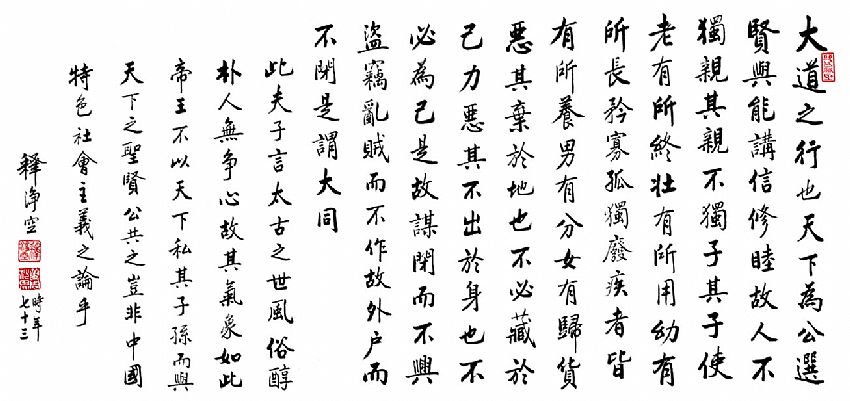 大道之行也天下為公選
賢與能講信修睦故人不
獨親其親不獨子其子使
老有所終壮有所用幼有
所長矜寡孤獨廢疾者皆
有所養男有分女有歸貨
惡其棄於地也不必藏於
己力惡其不出於身也不
必為己是故謀閉而不興
盜竊亂賊而不作故外户而
不閉是謂大同
此夫子言太古之世風俗醇
朴人無爭心故其氣象如此
帝王不以天下私其子孫而與
天下之聖賢公共之豈非中國
特色社會主義之論乎
釋淨空
時年
七十三